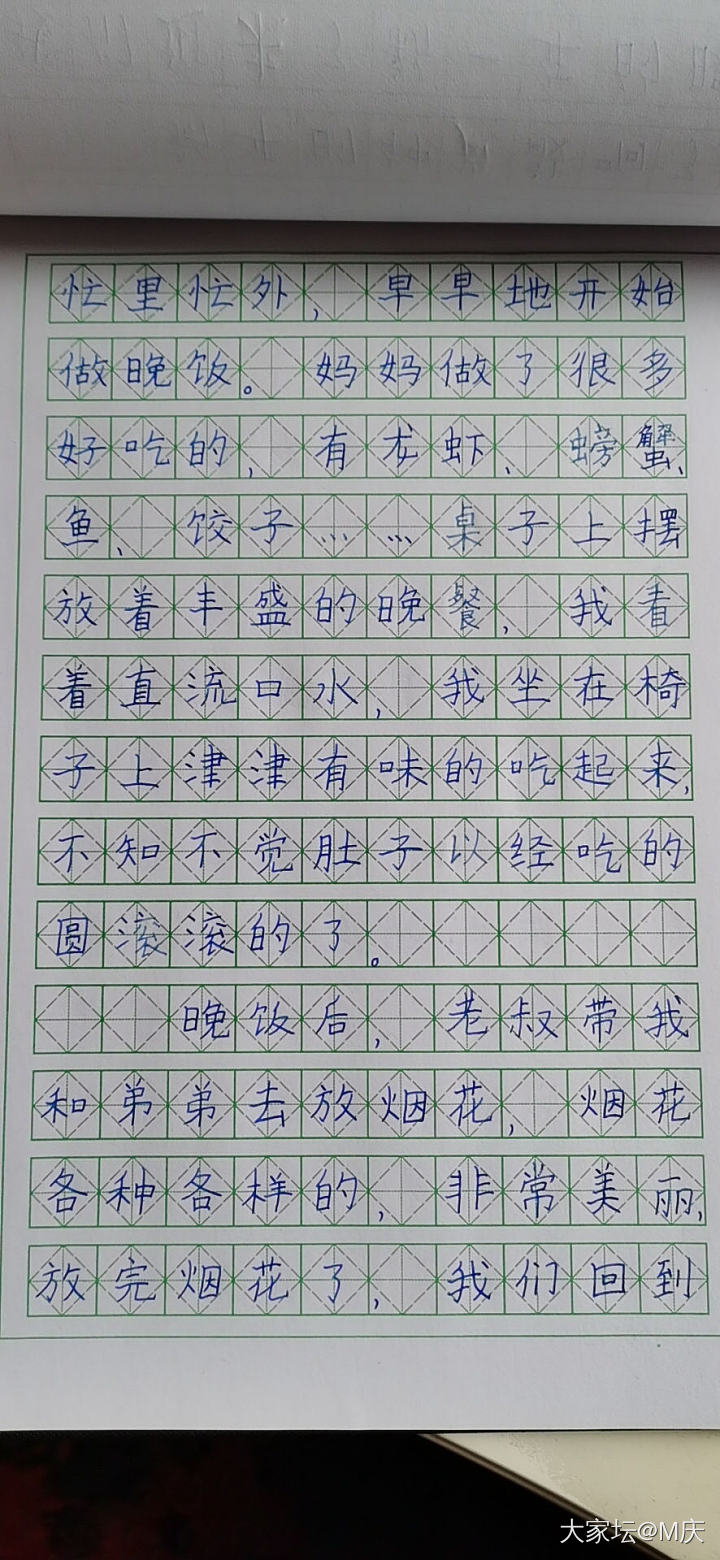 忙里忙外，早早地开始
做晚饭。妈妈做了很多
好吃的，有龙虾、螃蟹、
鱼、饺子……桌子上摆
放着丰盛的晚餐，我看
着直流口水，我坐在椅
子上津津有味的吃起来，
不知不觉肚子以经吃的
圆滚滚的了。
晚饭后，老叔带我
和弟弟去放烟花，烟花
各种各样的，非常美丽，
放完烟花了，我们回到
大家坛@M庆